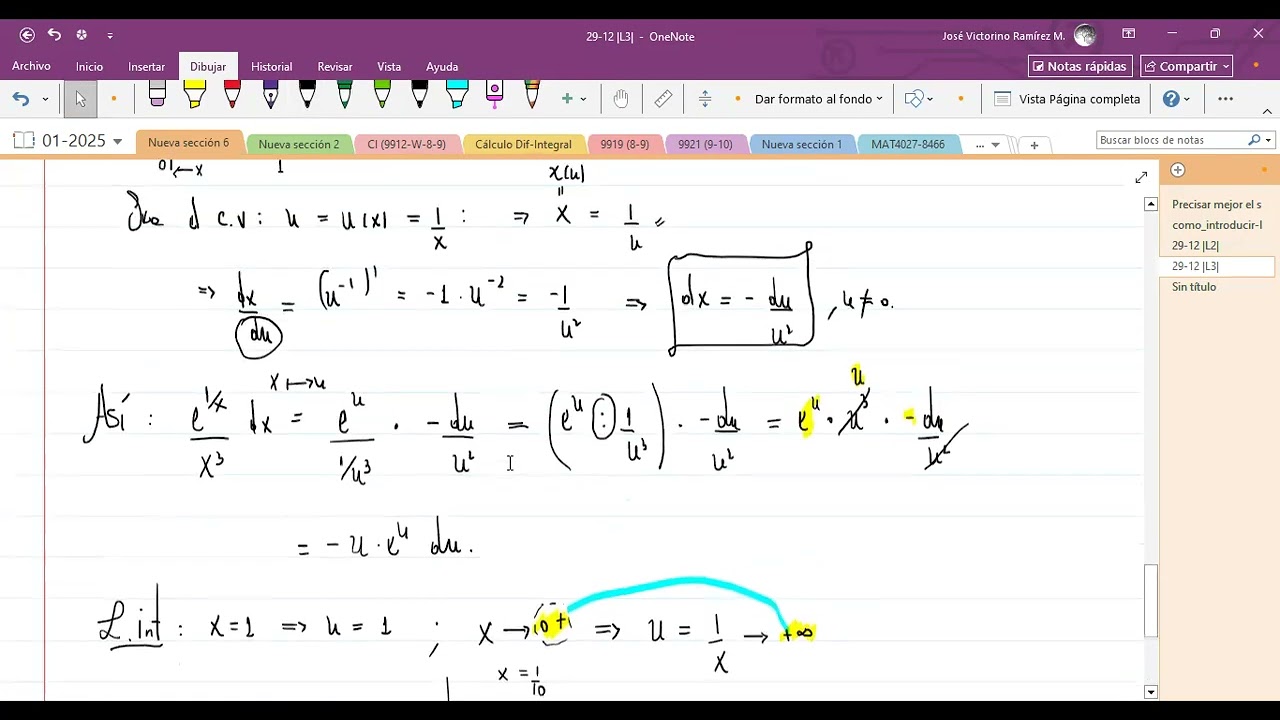 29-12 |L3| - OneNote
José Victorino Ramírez M.
Archivo Inicio Insertar Dibujar Historial Revisar Vista Ayuda
Notas rápidas Compartir
Dar formato al fondo Vista Página completa
01-2025 Nueva sección 6 Nueva sección 2 CI (9912-W-8-9) Cálculo Dif-Integral 9919 (8-9) 9921 (9-10) Nueva sección 1 MAT4027-8466
Buscar blocs de notas
Precisar mejor el s
como_introducir-l
29-12 |L2|
29-12 |L3|
Sin título
01 ← x 1 x(u)
d c.v: u = u(x) = 1/x : ⇒ x = 1/u
⇒ dx/du = (u^-1)' = -1 · u^-2 = -1/u² ⇒ dx = - du/u² , u ≠ 0.
x ↦ u u
Así : e^1/x / x³ dx = e^u / 1/u³ · -du/u² = (e^u : 1/u³) · -du/u² = e^u · u³ · -du/u²
= - u · e^u du.
L.int : x = 1 ⇒ u = 1 ; x → 0+ ⇒ u = 1/x → +∞
x = 1/10